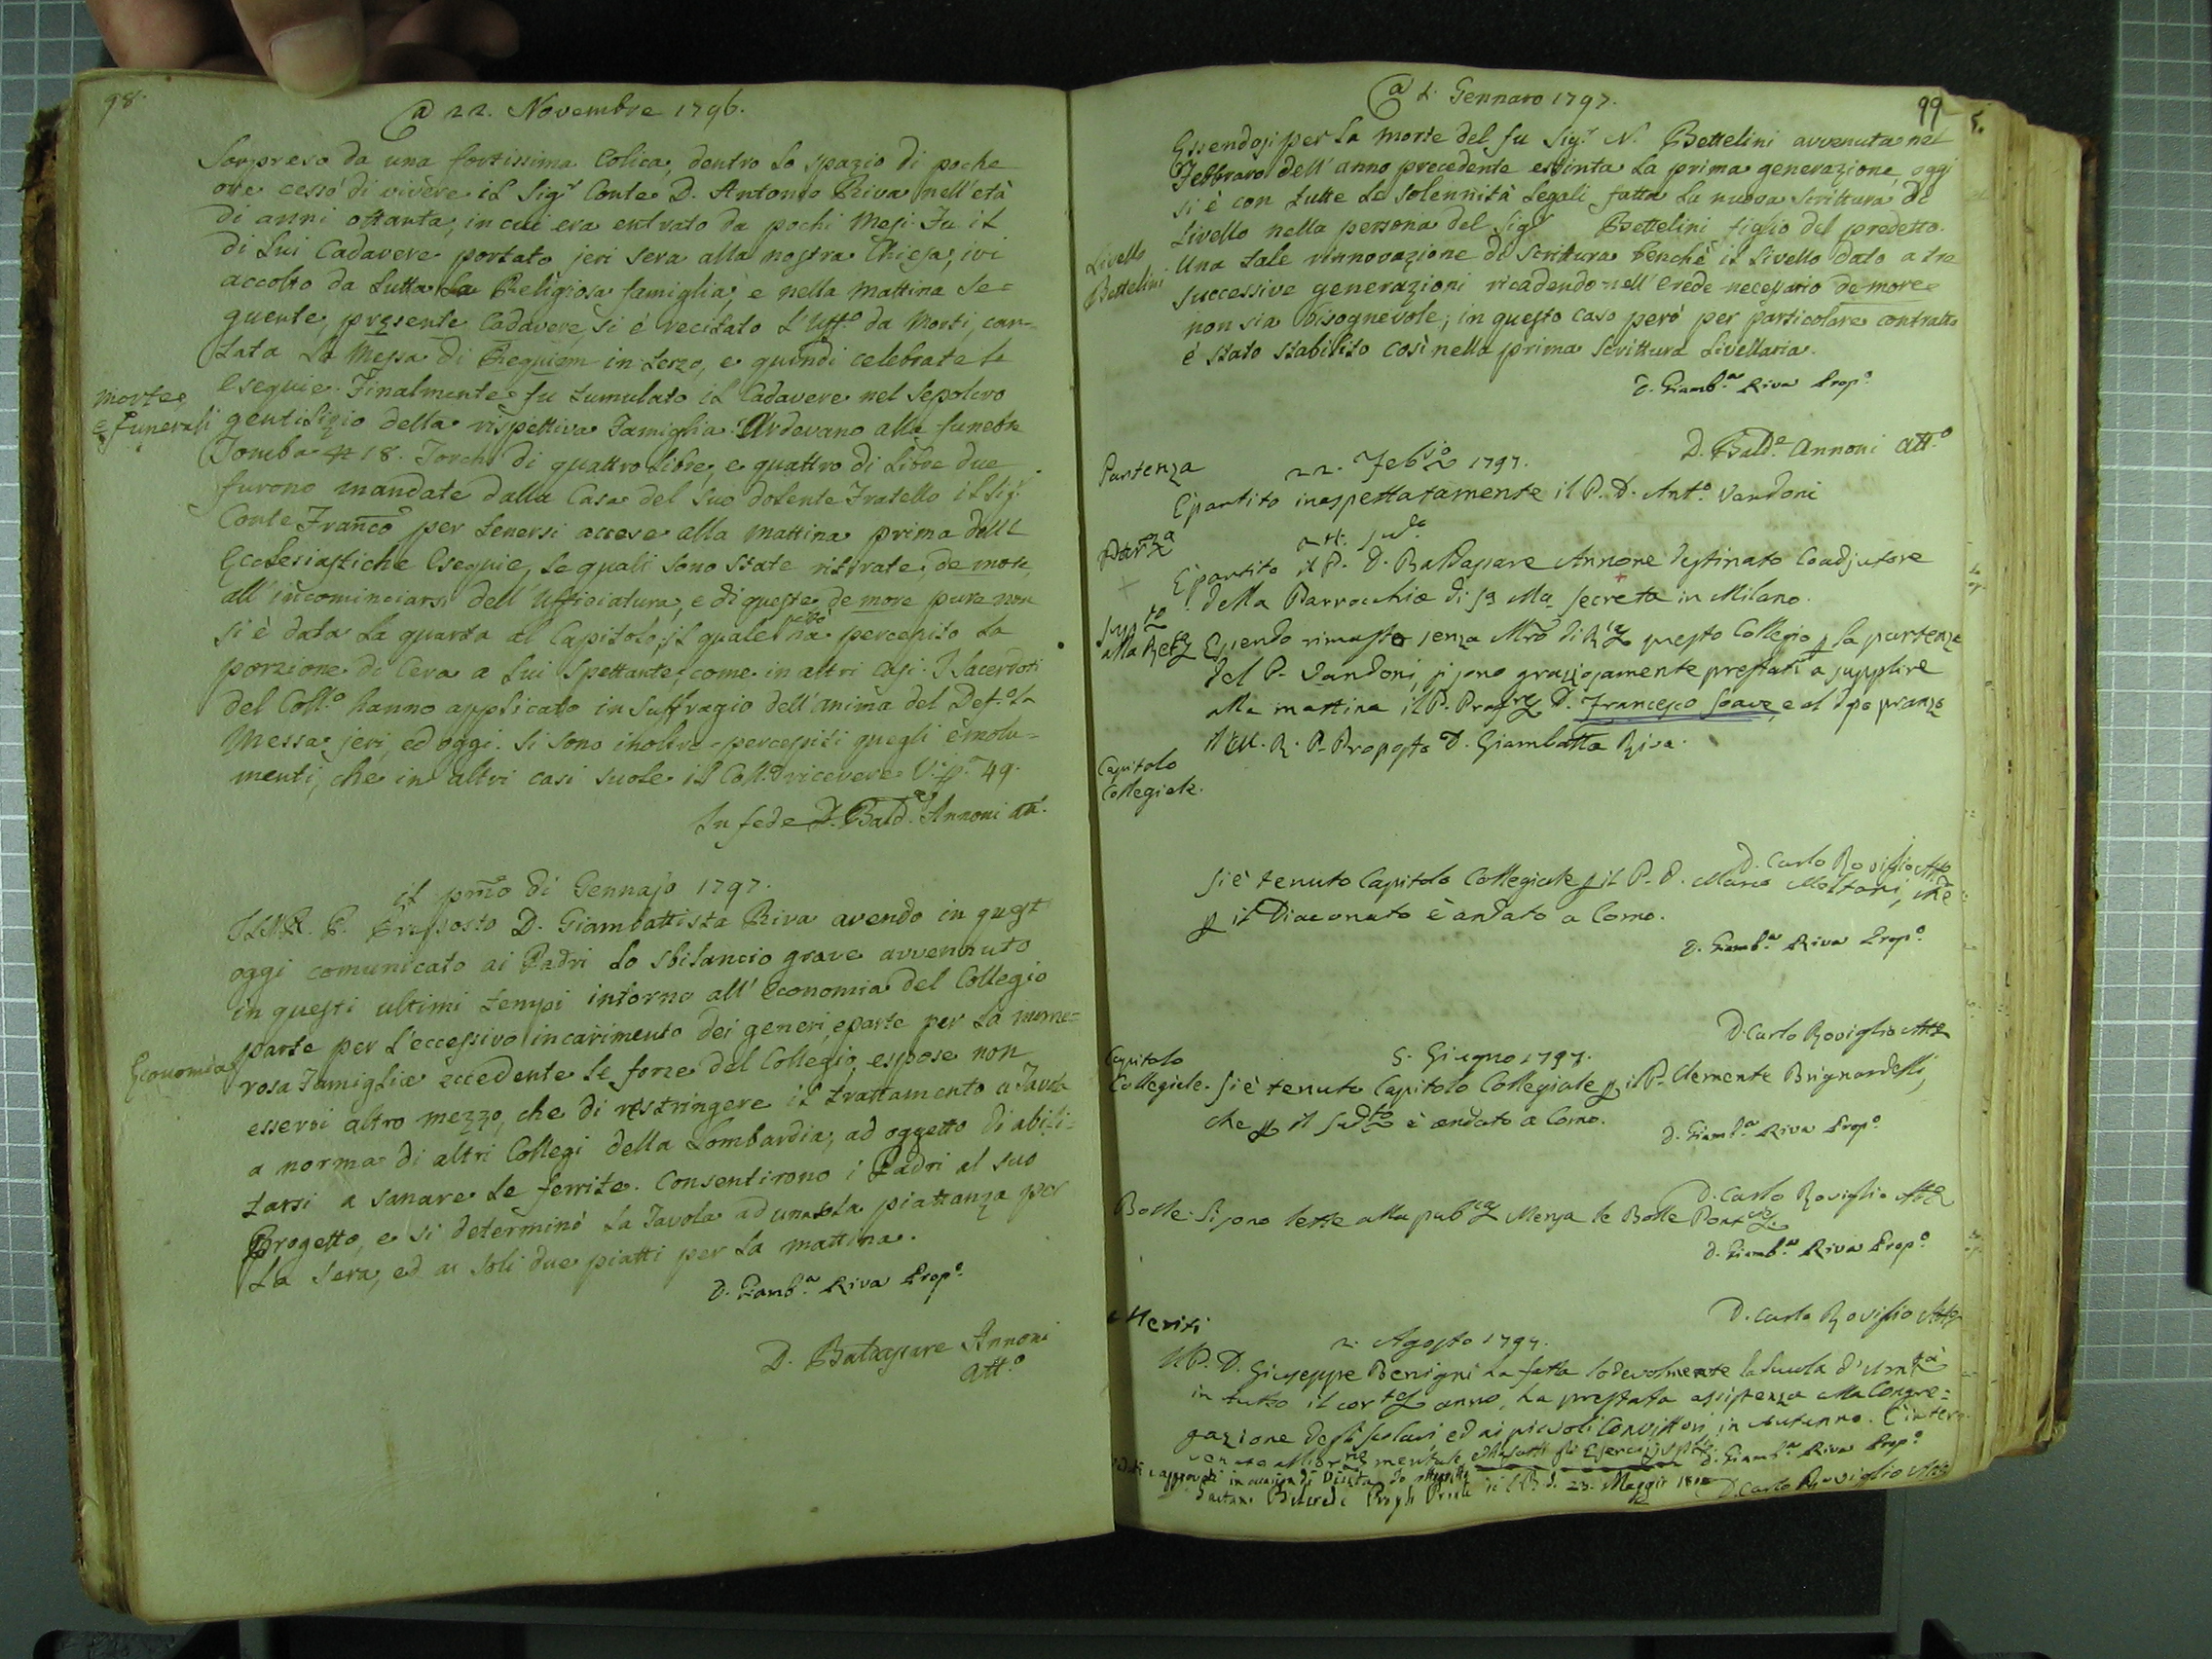 98.
@ 22. Novembre 1796.
Sorpreso da una fortissima Colica, dentro lo spazio di poche
ore cessò di vivere il Sigr Conte D. Antonio Riva nell'età
di anni ottanta, in cui era entrato da pochi Mesi. Fu il
di lui Cadavere portato jeri sera alla nostra Chiesa, ivi
accolto da tutta la Religiosa famiglia, e nella mattina se=
guente, presente Cadavere, si è recitato l'Uff.o da Morti, can=
tata la Messa di Requiem in terzo, e quindi celebrate l'
Esequie. Finalmente fu tumulato il Cadavere nel Sepolcro
Morte,
e funerali
gentilizio della rispettiva Famiglia. Ardevano alla funebre
Tomba 18. Torche di quattro libre, e quattro di libre due
furono mandate dalla Casa del suo dolente Fratello il Sigr
Conte Franco per tenersi accese alla mattina prima dell'
Ecclesiastiche Esequie, le quali sono state ritirate, de more,
all'incominciarsi dell'Ufficiatura, e di queste de more pure non
si è data la quarta al Capitolo, il quale ha percepito la
porzione di Cera a lui spettante, come in altri casi. I Sacerdoti
del Coll.o hanno applicato in suffragio dell'anima del Def.o la
Messa jeri, ed oggi. Si sono inoltre percepiti quegli emolu=
menti, che in altri casi suole il Coll.o ricevere V. p. 49.
In fede D. Bald.e Annoni att.
il pmo di Gennajo 1797.
Il M. R. P. Preposto D. Giambattista Riva avendo in quest'
oggi comunicato ai Padri lo sbilancio grave avvennuto
in questi ultimi tempi intorno all'economia del Collegio
parte per l'eccessivo incarimento dei generi, e parte per la nume=
Economia
rosa Famiglia eccedente le forze del Collegio, espose non
esservi altro mezzo, che di ristringere il trattamento a Tavola
a norma di altri Collegi della Lombardia, ad oggetto di abili=
tarsi a sanare le ferite. Consentirono i Padri al suo
Progetto, e si determinò la Tavola ad una sola piattanza per
la sera, ed ai soli due piatti per la mattina.
D. Giamb.a Riva Prop.o
D. Baldassare Annoni
Att.o
99
Gennaro 1797.
Essendosi per la morte del fu Sigr N. Bettelini avvenuta nel
Febbraro dell'anno precedente estinta la prima generazione, oggi
si è con tutte le solennità legali fatta la nuova scrittura di
Livello nella persona del Sigr Bettelini figlio del predetto.
Livello
Bettelini
Una tale rinnovazione di Scrittura benchè il livello dato a tre
successive generazioni ricadendo nell'erede necessario de more
non sia bisognevole; in questo caso però per particolare contratto
è stato stabilito così nella prima scrittura livellaria.
D. Giamb.a Riva Prop.o
D. Bald.e Annoni Att.o
Partenza
22. Febro 1797.
È partito inaspettatamente il P. D. Ant.o Vandoni
Parza
È partito il P. D. Baldassare Annone destinato Coadjutore
della Parrocchia di Sa Ma Secreta in Milano.
alla Reta
Essendo rimasto senza Mro di Rca questo Collegio p la partenza
del P. Vandoni, si sono graziosamente prestati a supplire
alla mattina il P. D. Francesco Soave, e al dopo pranzo
il M. R. P. Preposto D. Giambatta Riva.
Capitolo
Collegiale.
D. Carlo Roviglio Atto
Si è tenuto Capitolo Collegiale p il P. D. Marco Moltani, che
p il Diaconato è andato a Como.
D. Giamb.a Riva Prop.o
D. Carlo Roviglio Atto
Capitolo
Collegiale.
5. Giugno 1797.
Si è tenuto Capitolo Collegiale p il P. Clemente Brignardelli,
che p il Sudto è andato a Como.
D. Giamb.a Riva Prop.o
D. Carlo Roviglio Atto
Bolle. Si sono lette alla pubca Mensa le Bolle
D. Giamb.a Riva Prop.o
D. Carlo Roviglio Atto
Meriti
2. Agosto 1797.
Il P. D. Giuseppe Benigni ha fatta lodevolmente la Scuola d'Umtà
in tutto il corte anno, ha prestata assistenza alla Congre=
gazione degli Scolari, ed ai piccoli Convittori in Autunno. È inter=
D. Giamb.a Riva Prop.o
approvati in occasione di Visita
23. Maggio
D. Carlo Roviglio Atto